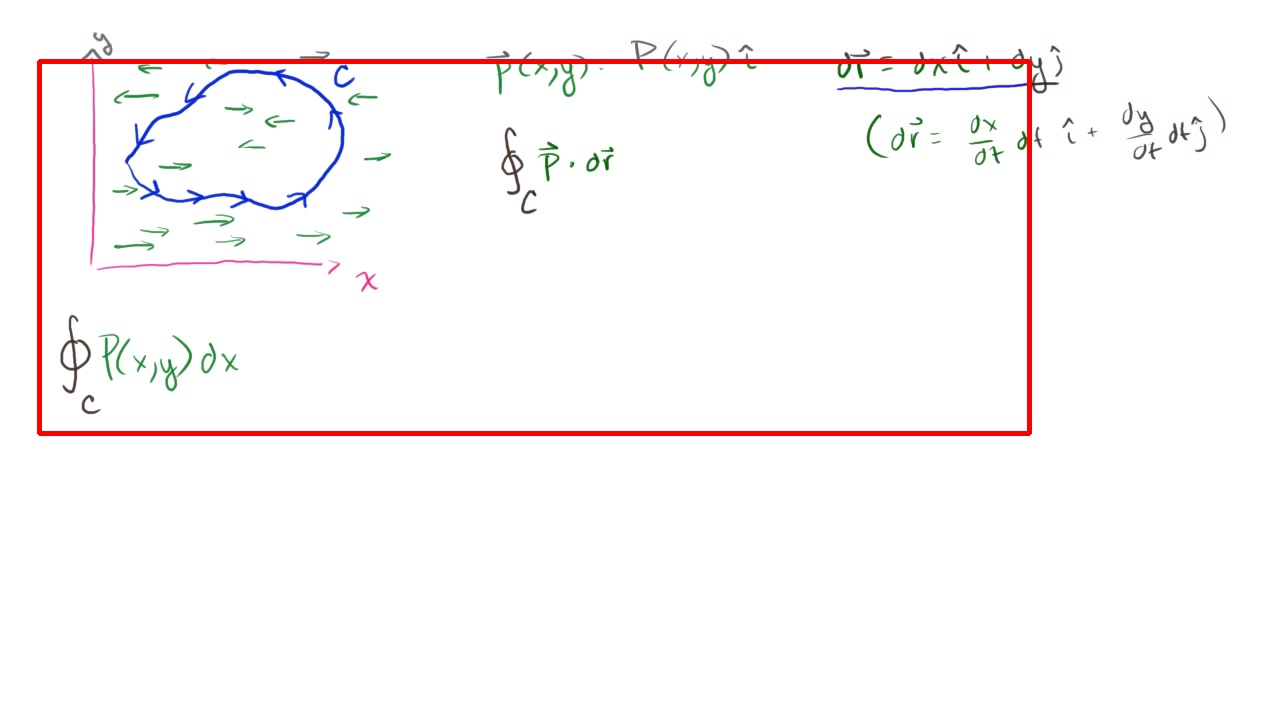 y
C
x
P⃗(x,y) = P(x,y) î
dr⃗ = dx î + dy ĵ
(dr⃗ = dx/dt dt î + dy/dt dt ĵ)
∮_C P⃗ · dr⃗
∮_C P(x,y) dx